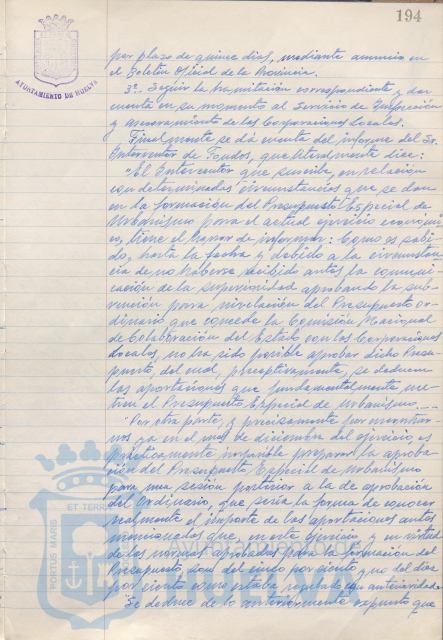 194
AYUNTAMIENTO DE HUELVA
por plazo de quince días, mediante anuncio en
el Boletín Oficial de la Provincia.
3º. Seguir la tramitación correspondiente y dar
cuenta en su momento al Servicio de Inspección
y Asesoramiento de las Corporaciones Locales.
Finalmente se dá cuenta del informe del Sr.
Interventor de Fondos, que literalmente dice:
"El Interventor que suscribe, en relación
con determinadas circunstancias que se dan
en la formación del Presupuesto Especial de
Urbanismo para el actual ejercicio económi-
co, tiene el honor de informar: Como es sabi-
do, hasta la fecha y debido a la circunstan-
cia de no haberse recibido antes la comuni-
cación de la superioridad aprobando la sub-
vención para nivelación del Presupuesto Or-
dinario que concede la Comisión Nacional
de Colaboración del Estado con las Corporaciones
Locales, no ha sido posible aprobar dicho Presu-
puesto, del cual, preceptivamente, se deducen
las aportaciones que fundamentalmente nu-
tren el Presupuesto Especial de Urbanismo.....
"Por otra parte, y precisamente por encontrar-
nos ya en el mes de diciembre del ejercicio, es
prácticamente imposible preparar la aproba-
ción del Presupuesto Especial de Urbanismo
para una sesión posterior a la de aprobación
del Ordinario, que sería la forma de conocer
realmente el importe de las aportaciones antes
mencionadas que, en este ejercicio y en virtud
de las normas aprobadas para la formación del
Presupuesto son del cinco por ciento y no del diez
por ciento como estaba regulado con anterioridad.
"Se deduce de lo anteriormente expuesto que
PORTUS MARIS
ET TERR
HUELVA